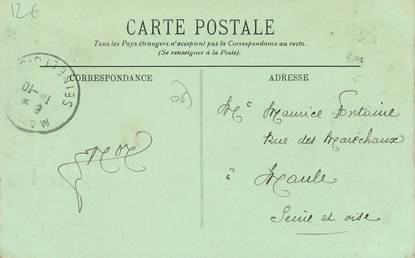 12€
CARTE POSTALE
Tous les Pays étrangers n'acceptent pas la Correspondance au recto.
(Se renseigner à la Poste).
CORRESPONDANCE
ADRESSE
Mr Maurice Fontaine
Rue des Maréchaux
à Maule
Seine et oise